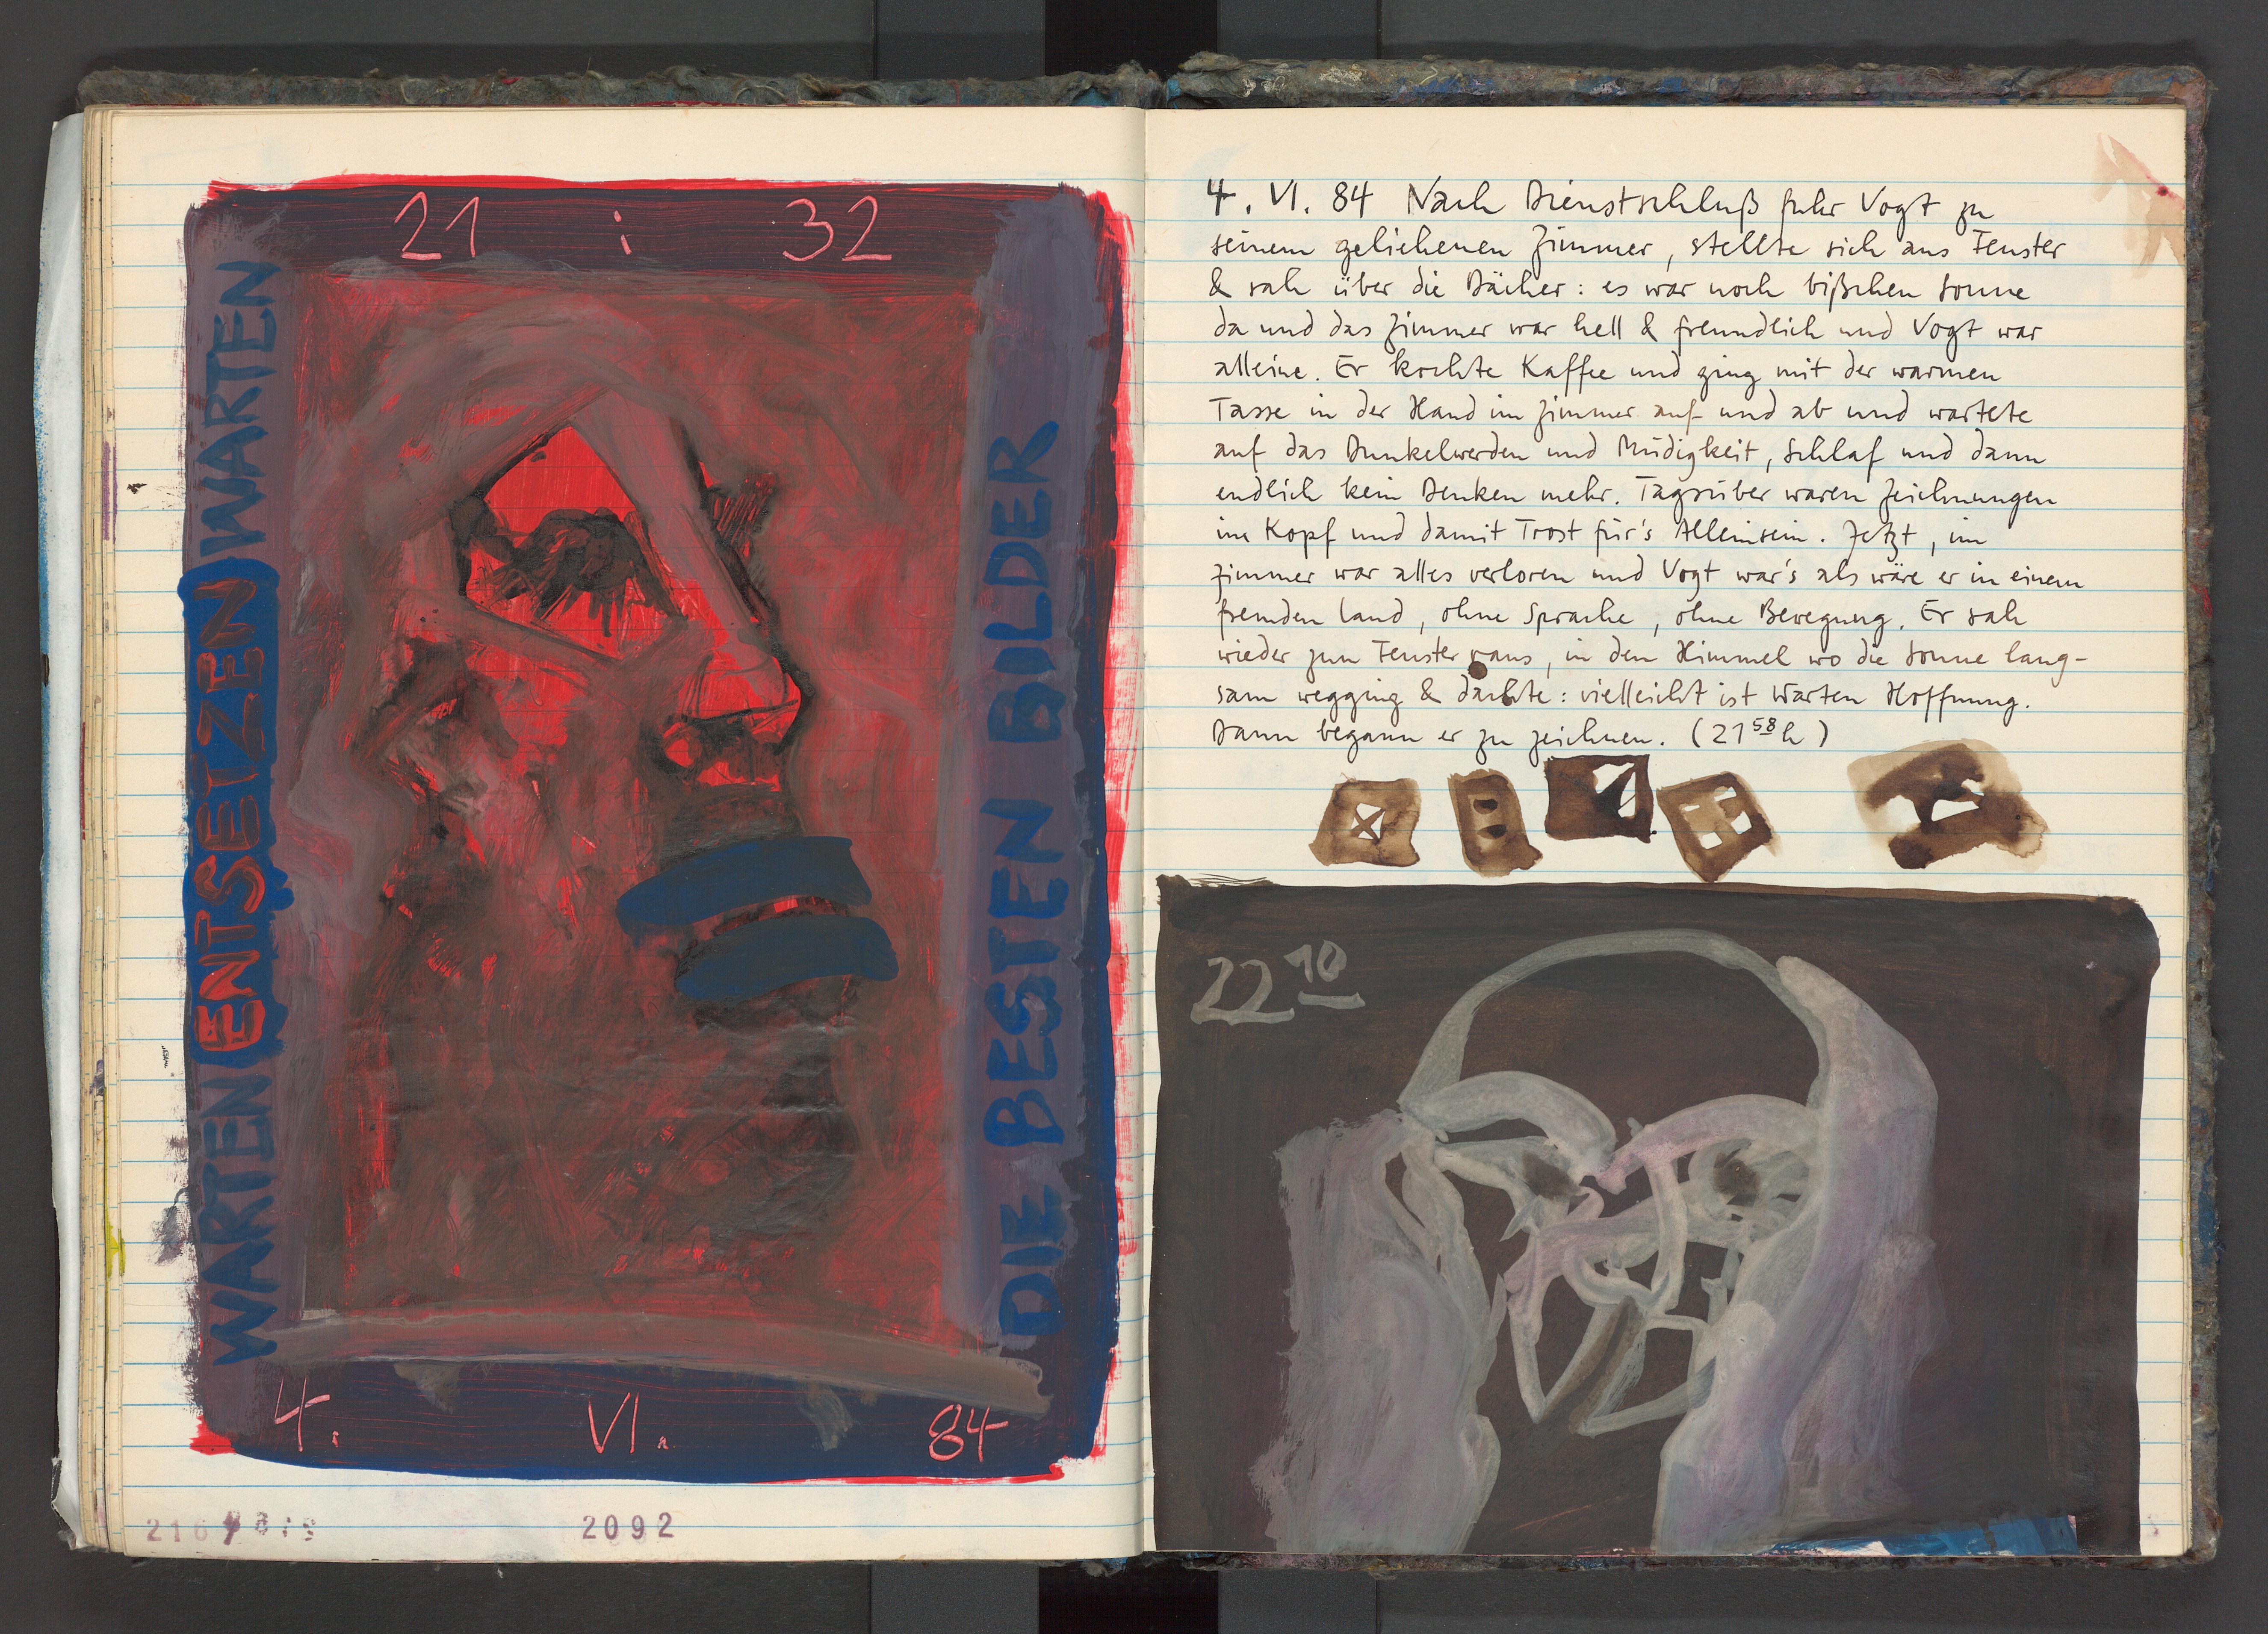 21 : 32
WARTEN ENTSETZEN WARTEN
DIE BESTEN BILDER
4. VI. 84
2092
4. VI. 84 Nach Dienstschluß fuhr Vogt zu
seinem geliehenen Zimmer, stellte sich ans Fenster
& sah über die Dächer: es war noch bißchen Sonne
da und das Zimmer war hell & freundlich und Vogt war
alleine. Er kochte Kaffee und ging mit der warmen
Tasse in der Hand im Zimmer auf und ab und wartete
auf das Dunkelwerden und Müdigkeit, Schlaf und dann
endlich kein Denken mehr. Tagsüber waren Zeichnungen
im Kopf und damit Trost für's Alleinsein. Jetzt, im
Zimmer war alles verloren und Vogt war's als wäre er in einem
fremden Land, ohne Sprache, ohne Bewegung. Er sah
wieder zum Fenster raus, in den Himmel wo die Sonne lang-
sam wegging & dachte: vielleicht ist Warten Hoffnung.
Dann begann er zu zeichnen. (21 58 h)
22 10